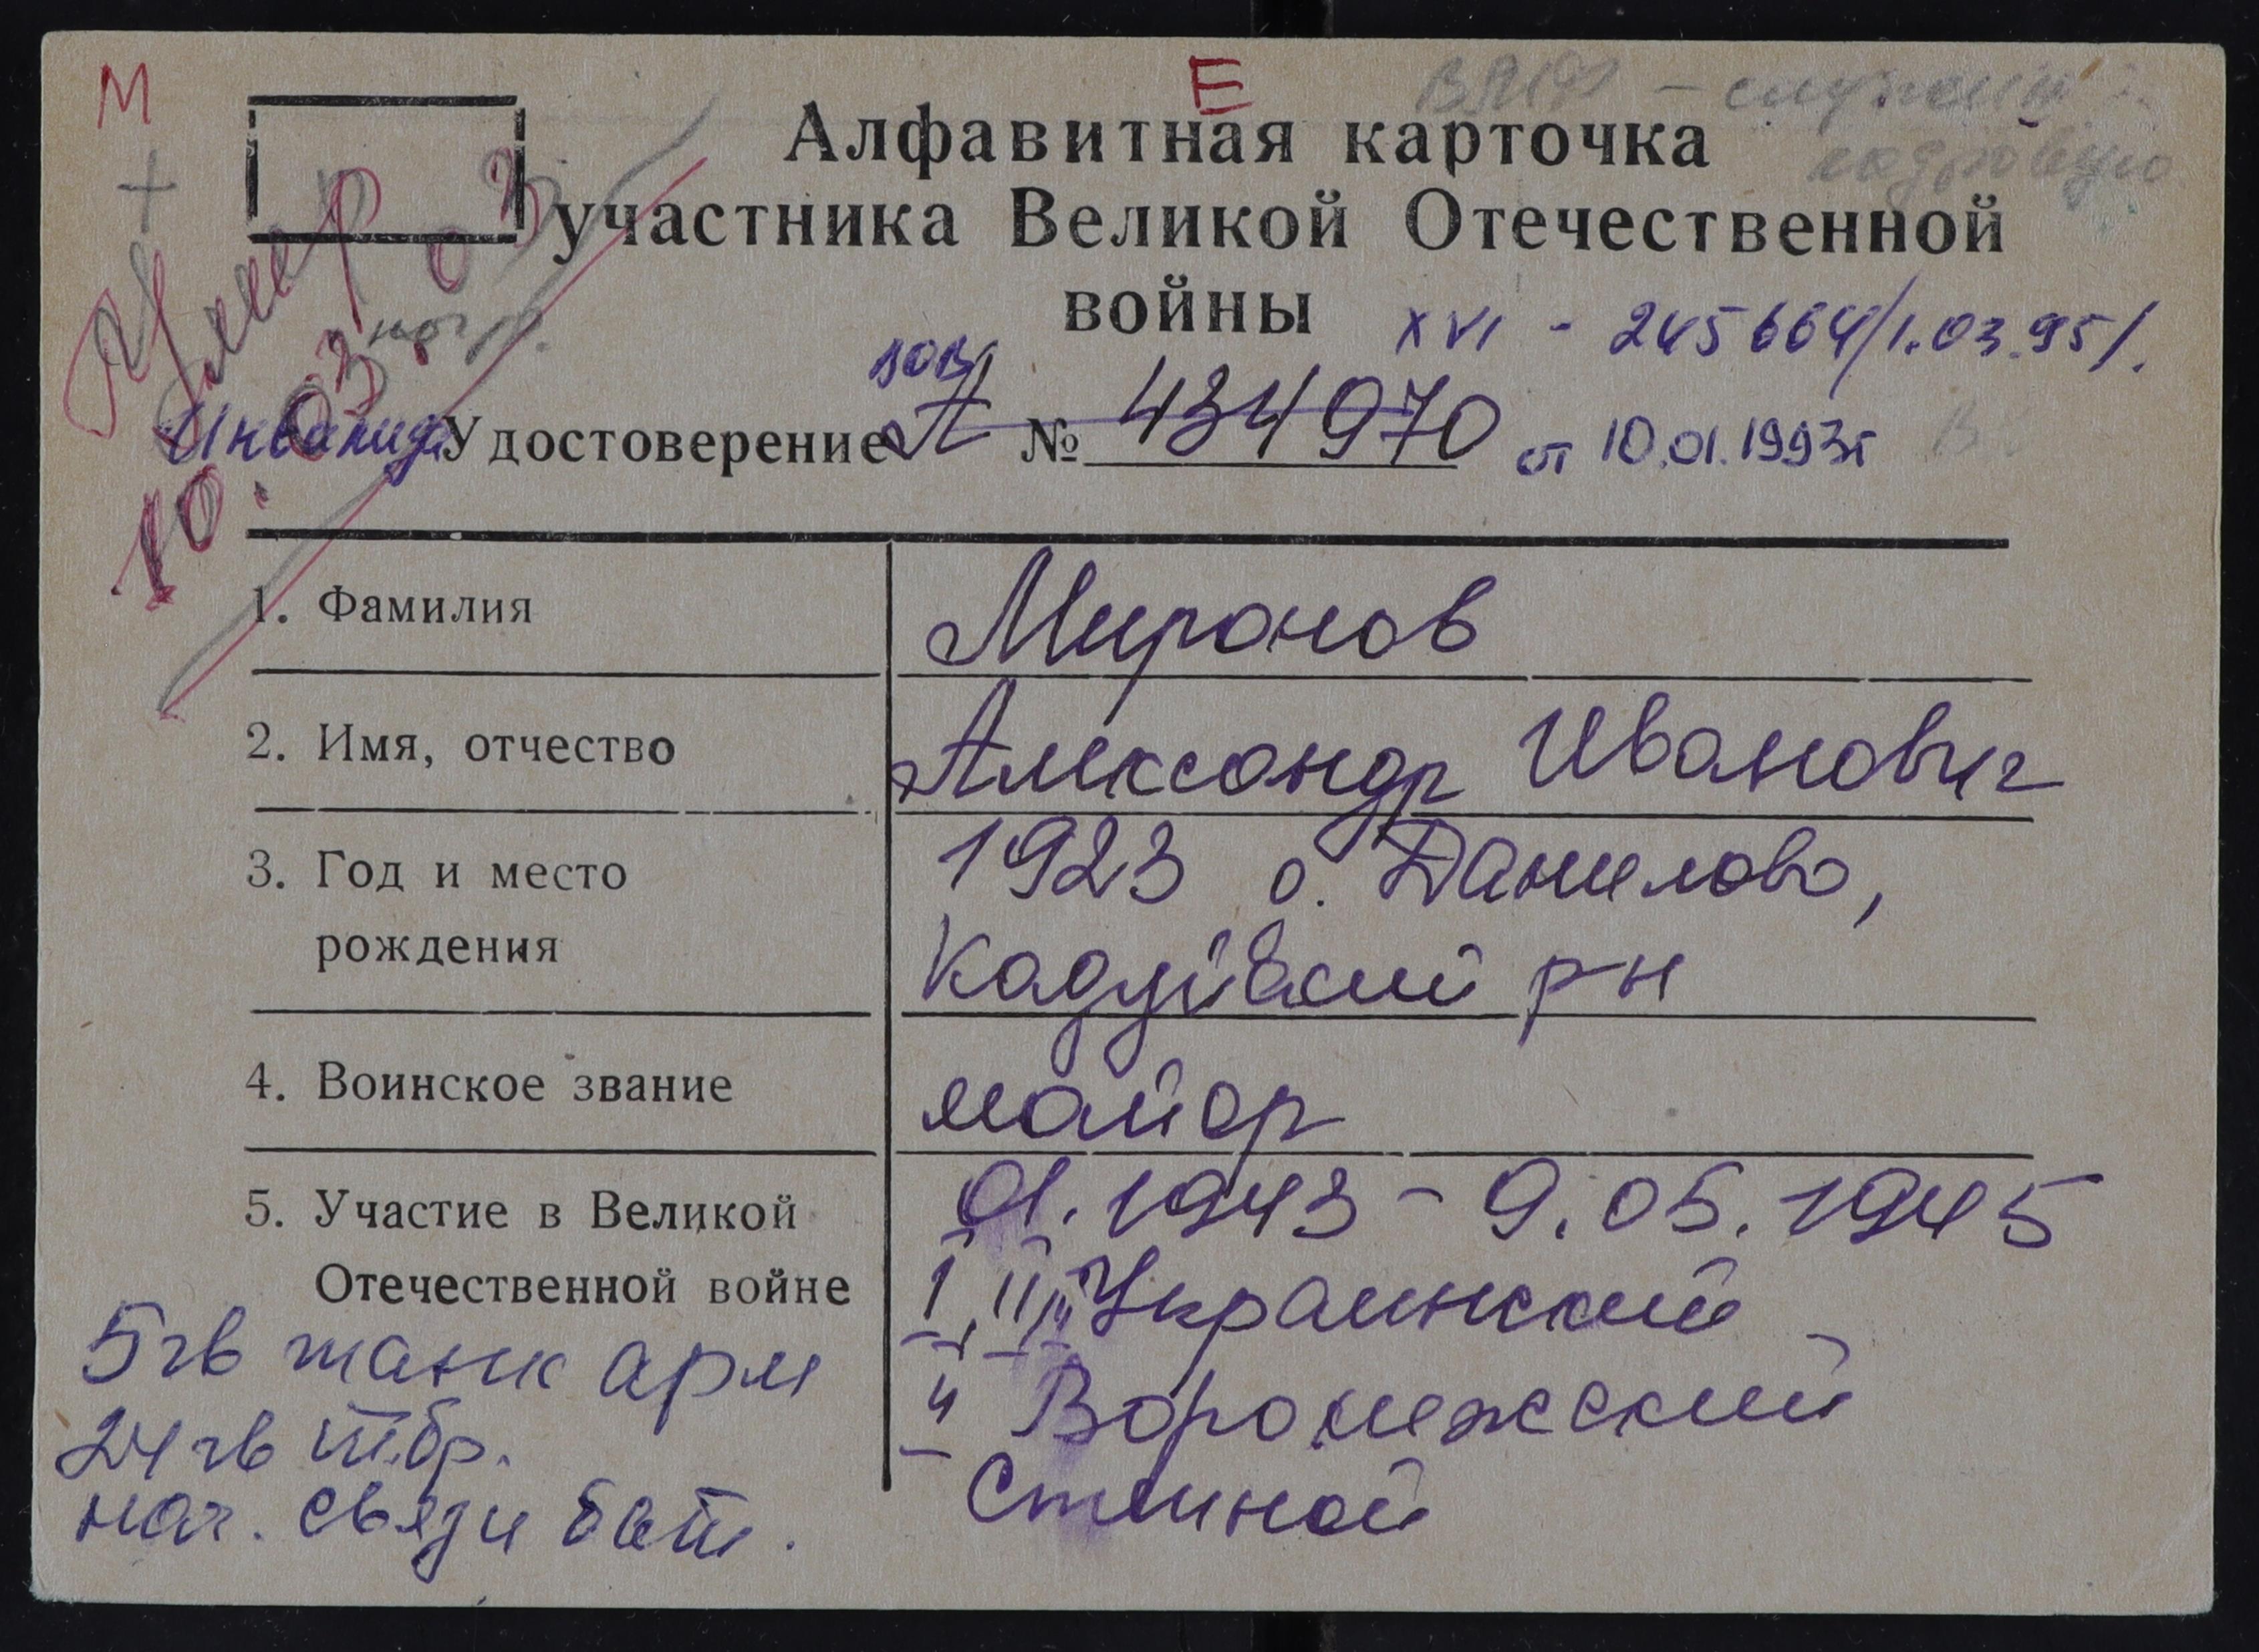 М
Е
Алфавитная карточка
участника Великой Отечественной
войны XVI - 245664/1.03.95г.
Умер
10.03.03
Инвалида ВОВ
Удостоверение А № 434970 от 10.01.1993г
1. Фамилия Миронов
2. Имя, отчество Александр Иванович
3. Год и место 1923 д. Данилово,
рождения Кадуйский р-н
4. Воинское звание майор
5. Участие в Великой 01.1943 - 9.05.1945
Отечественной войне I, II, III Украинский
5 гв танк арм и Воронежский
24 гв т.бр. Степной
нач. связи бат.